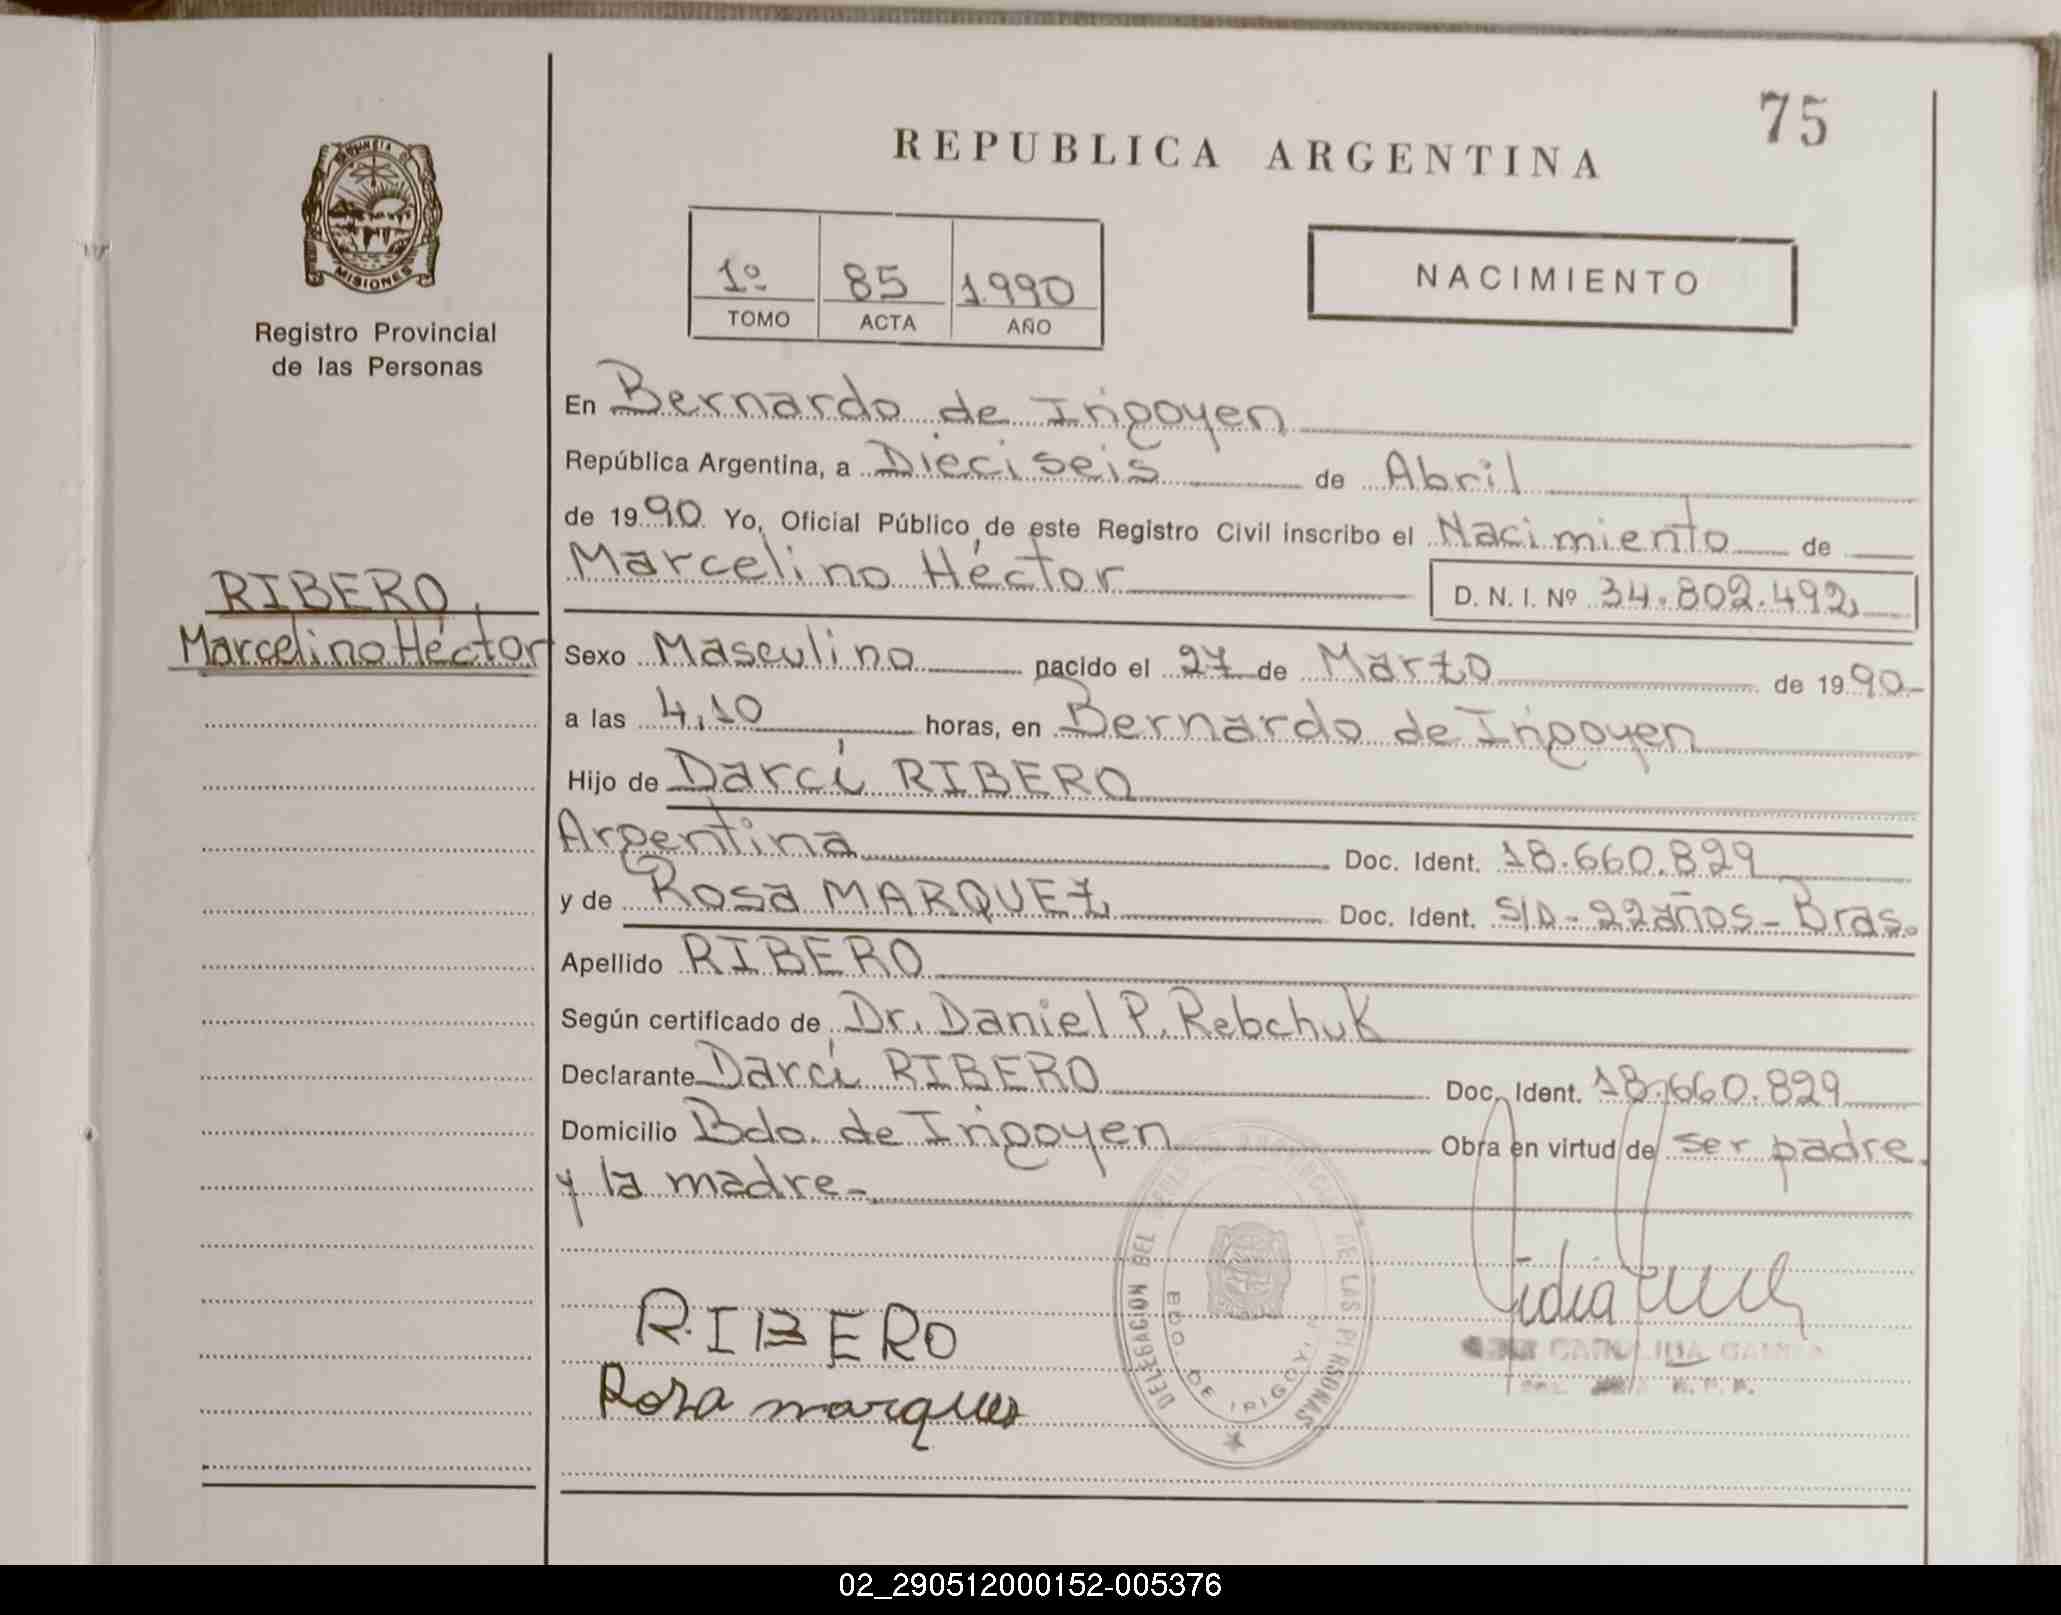 75
REPUBLICA ARGENTINA
PROVINCIA DE
MISIONES
Registro Provincial
de las Personas
1º 85 1.990
TOMO ACTA AÑO
NACIMIENTO
En Bernardo de Irigoyen
República Argentina, a Dieciseis de Abril
de 1990 Yo, Oficial Público de este Registro Civil inscribo el Nacimiento de
Marcelino Héctor
D. N. I. Nº 34.802.492
RIBERO,
Marcelino Héctor
Sexo Masculino nacido el 27 de Marzo de 1990-
a las 4,10 horas, en Bernardo de Irigoyen
Hijo de Darcí RIBERO
Argentina Doc. Ident. 18.660.829
y de Rosa MARQUEZ Doc. Ident. S/D - 22 años - Bras.
Apellido RIBERO
Según certificado de Dr. Daniel P. Rebchuk
Declarante Darcí RIBERO Doc. Ident. 18.660.829
Domicilio Bdo. de Irigoyen Obra en virtud de ser padre
y la madre-
RIBERO
Rosa marques
DELEGACION DEL PROVINCIAL DE LAS PERSONAS
BDO. DE IRIGOYEN
Lidia
CAROLINA
R.P.P.
02_290512000152-005376